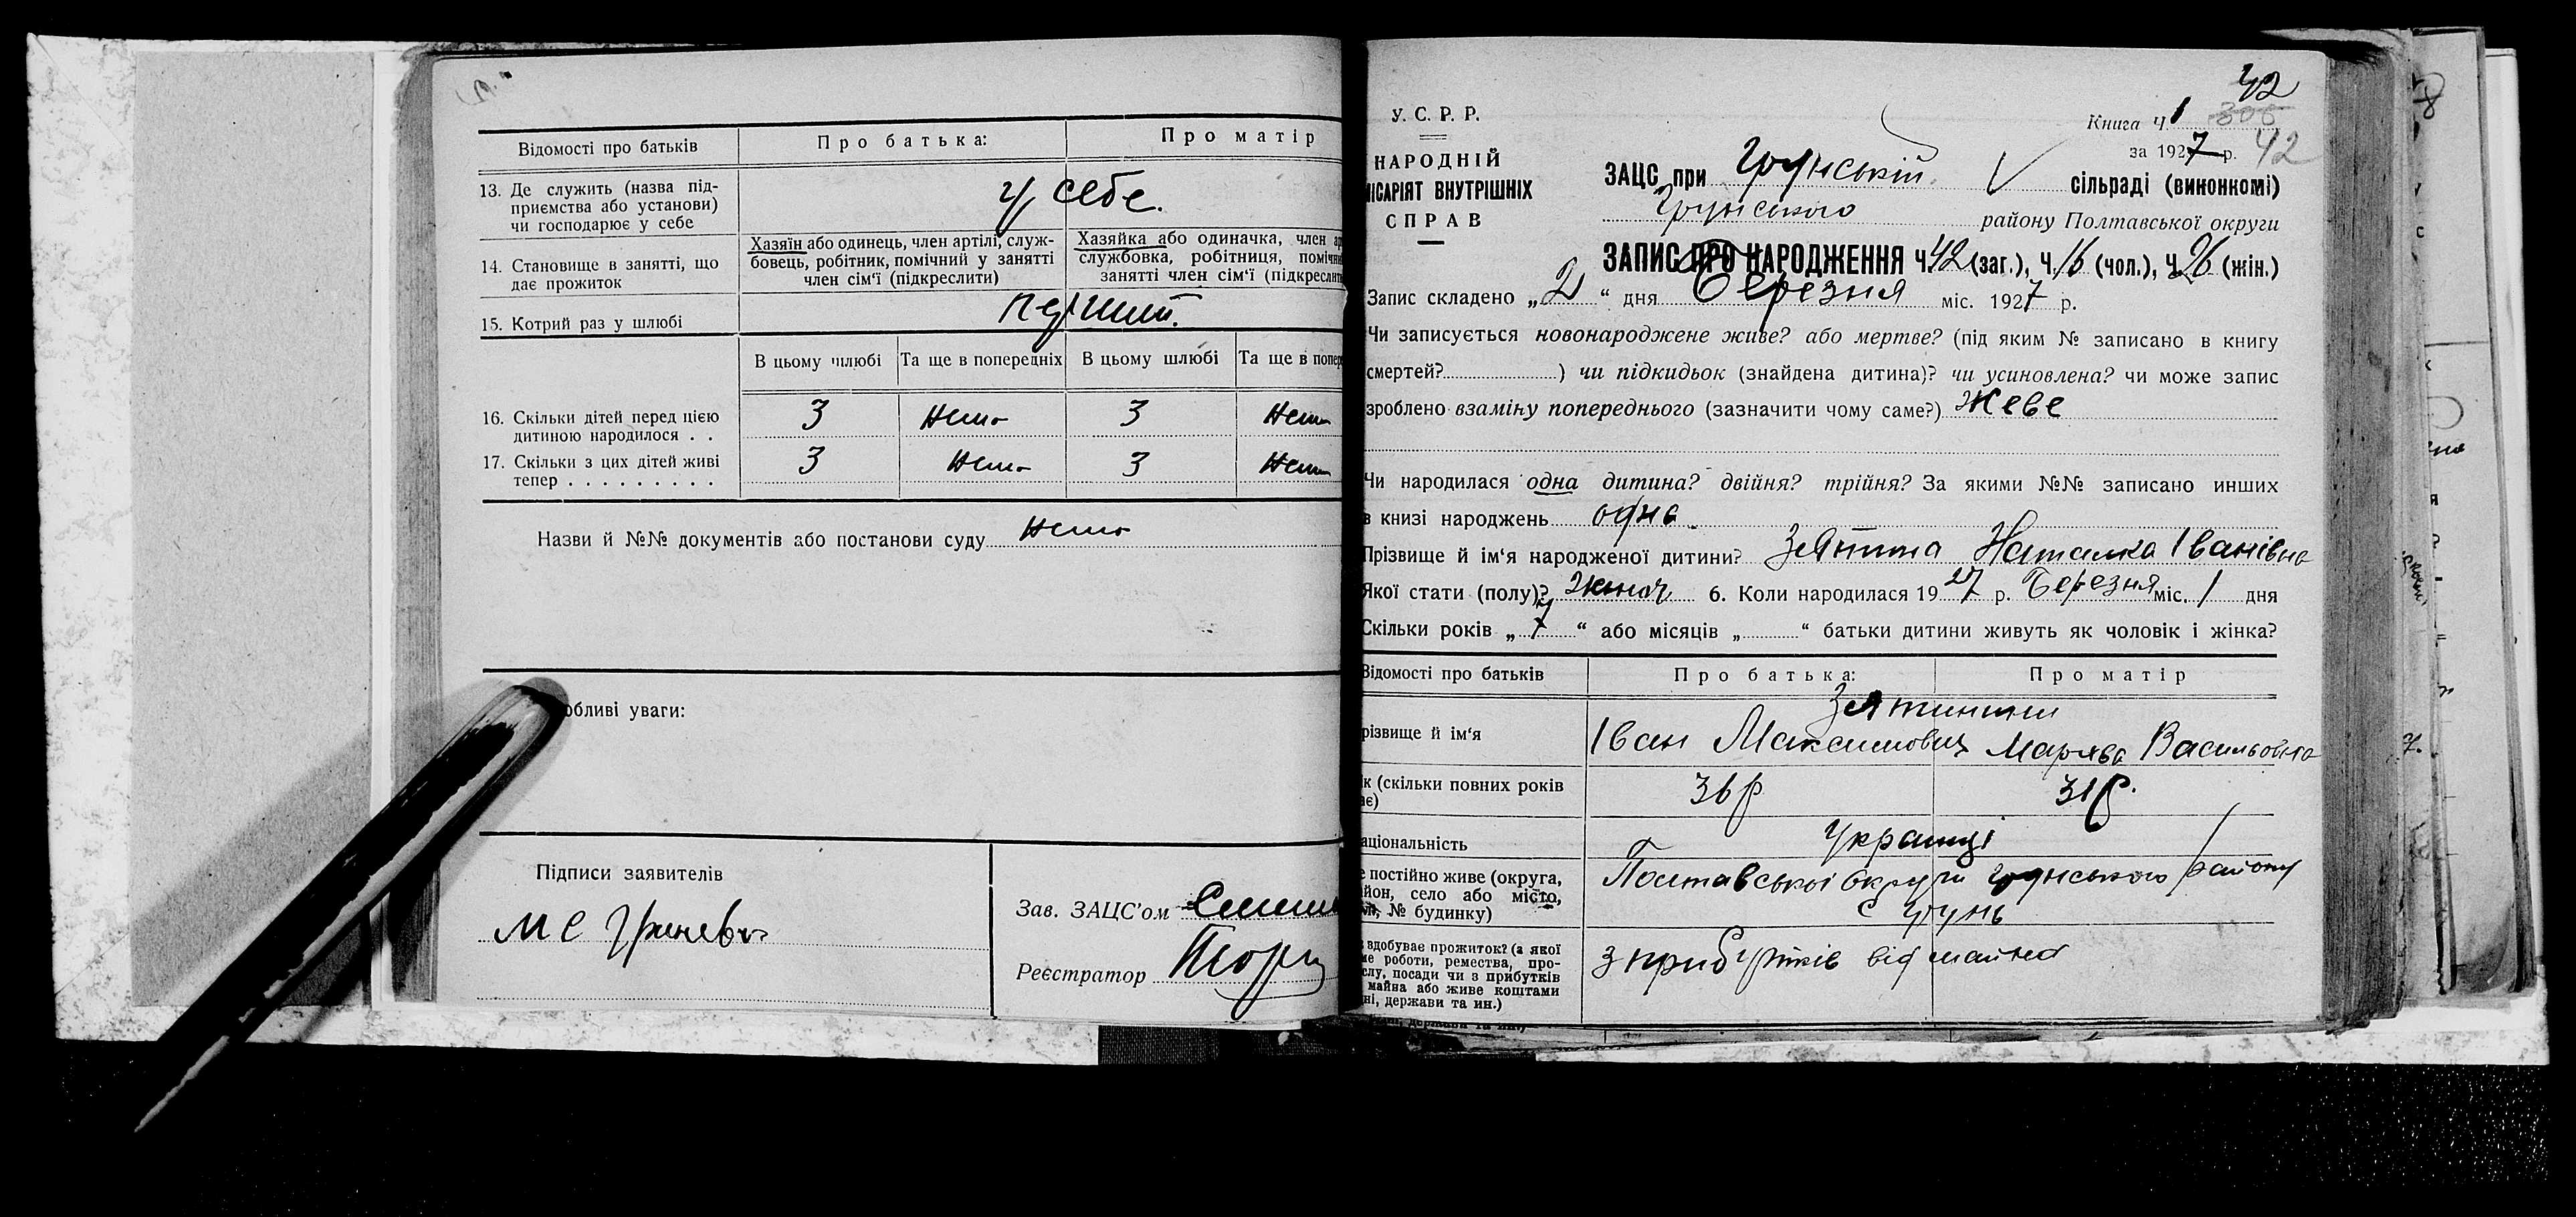 Відомості про батьків
Про батька:
Про матір
13. Де служить (назва під-
приємства або установи)
чи господарює у себе
у себе.
14. Становище в занятті, що
дає прожиток
Хазяїн або одинець, член артілі, служ-
бовець, робітник, помічний у занятті
член сім'ї (підкреслити)
Хазяйка або одиначка, член
службовка, робітниця,
занятті член сім'ї
15. Котрий раз у шлюбі
перший.
В цьому шлюбі
Та ще в попередніх
В цьому шлюбі
Та ще в
16. Скільки дітей перед цією
дитиною народилося . .
3 нема 3 нема
17. Скільки з цих дітей живі
тепер . . . . . . . . .
3 нема 3 нема
Назви й №№ документів або постанови суду нема
обливі уваги:
Підписи заявителів
М С
Зав. ЗАЦС'ом
Реєстратор
42
У. С. Р. Р.
НАРОДНІЙ
ІСАРІЯТ ВНУТРІШНІХ
СПРАВ
Книга ч. 1 306
за 1927 р. 42
ЗАЦС при Грунській сільраді (виконкомі)
Грунського району Полтавської округи
ЗАПИС ПРО НАРОДЖЕННЯ Ч. 42 (заг.), Ч. 16 (чол.), Ч. 26 (жін.)
Запис складено „2“ дня Березня міс. 1927 р.
Чи записується новонароджене живе? або мертве? (під яким № записано в книгу
смертей? ) чи підкидьок (знайдена дитина)? чи усиновлена? чи може запис
зроблено взаміну попереднього (зазначити чому саме?) Жеве
Чи народилася одна дитина? двійня? трійня? За якими №№ записано инших
в книзі народжень одна
Прізвище й ім'я народженої дитини? Наталка Іванівна
Якої стати (полу)? 6. Коли народилася 1927 р. Березня міс. 1 дня
Скільки років „7“ або місяців „ “ батьки дитини живуть як чоловік і жінка?
Відомості про батьків
Про батька:
Про матір
різвище й ім'я
Іван Максимович
Васильовна
к (скільки повних років
ає)
36 р
31 р.
аціональність
Українці
е постійно живе (округа,
йон, село або місто,
№ будинку)
Полтавської округи Грунського району
с Грунь
вдобуває прожиток? (з якої
ме роботи, ремества, про-
слу, посади чи з прибутків
майна або живе коштами
ні, держави та ин.)
з прибутків від майна